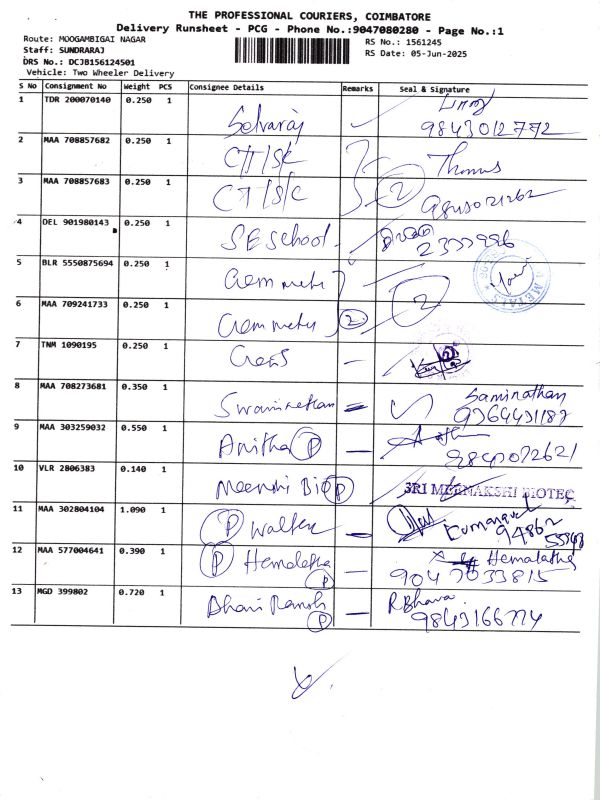 THE PROFESSIONAL COURIERS, COIMBATORE
Delivery Runsheet - PCG - Phone No.:9047080280 - Page No.:1
Route: MOOGAMBIGAI NAGAR
RS No.: 1561245
Staff: SUNDRARAJ
RS Date: 05-Jun-2025
DRS No.: DCJB156124501
Vehicle: Two Wheeler Delivery
S No Consignment No Weight PCS Consignee Details Remarks Seal & Signature
1 TDR 200070140 0.250 1 Selvaraj 9843012772
2 MAA 708857682 0.250 1 Thomas
3 MAA 708857683 0.250 1 2
4 DEL 901980143 0.250 1 SE School
5 BLR 5550875694 0.250 1 2
6 MAA 709241733 0.250 1 2
7 TNM 1090195 0.250 1
8 MAA 708273681 0.350 1 Swaminathan Saminathan
9 MAA 303259032 0.550 1 Anitha P
10 VLR 2806383 0.140 1 Meenshi Bio P SRI MEENAKSHI BIOTEC
11 MAA 302804104 1.090 1 P
12 MAA 577004641 0.390 1 P Hemalatha P Hemalatha
9047033815
13 MGD 399802 0.720 1 P R.Bhava
9843166774